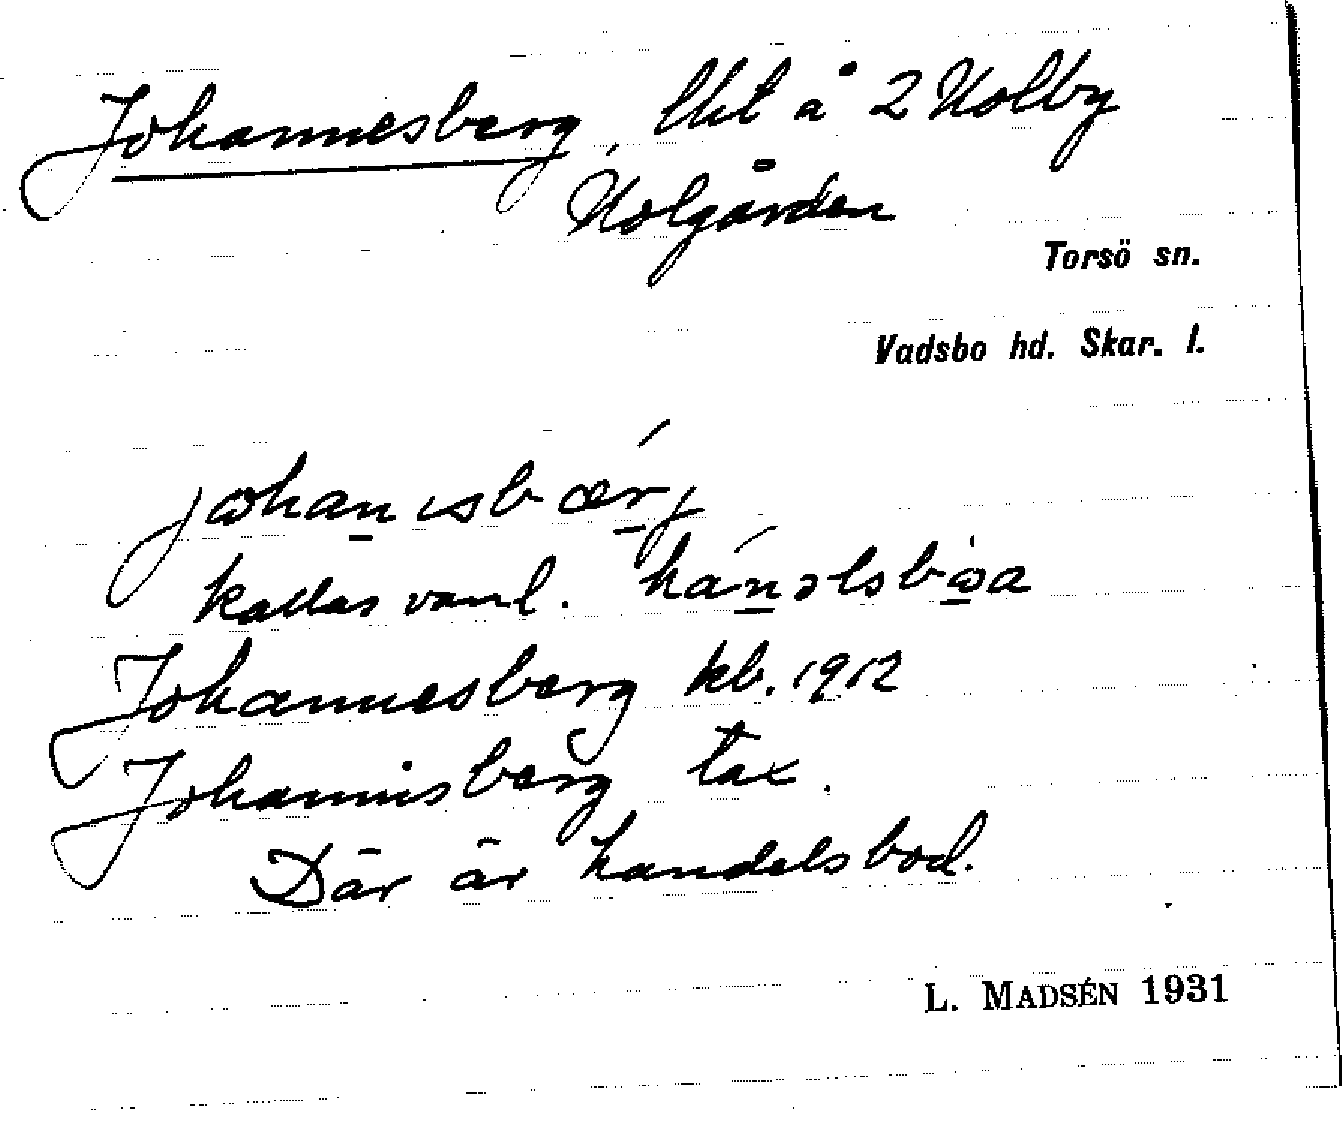 Johannesberg, lht å 2 Kolby
Kolgården
Torsö sn.
Vadsbo hd. Skar. l.
johanɩsbærj
kallas vanl. hánəlsbòa
Johannesberg kb. 1912
Johannisberg tax.
Där är handelsbod.
L. MADSÉN 1931